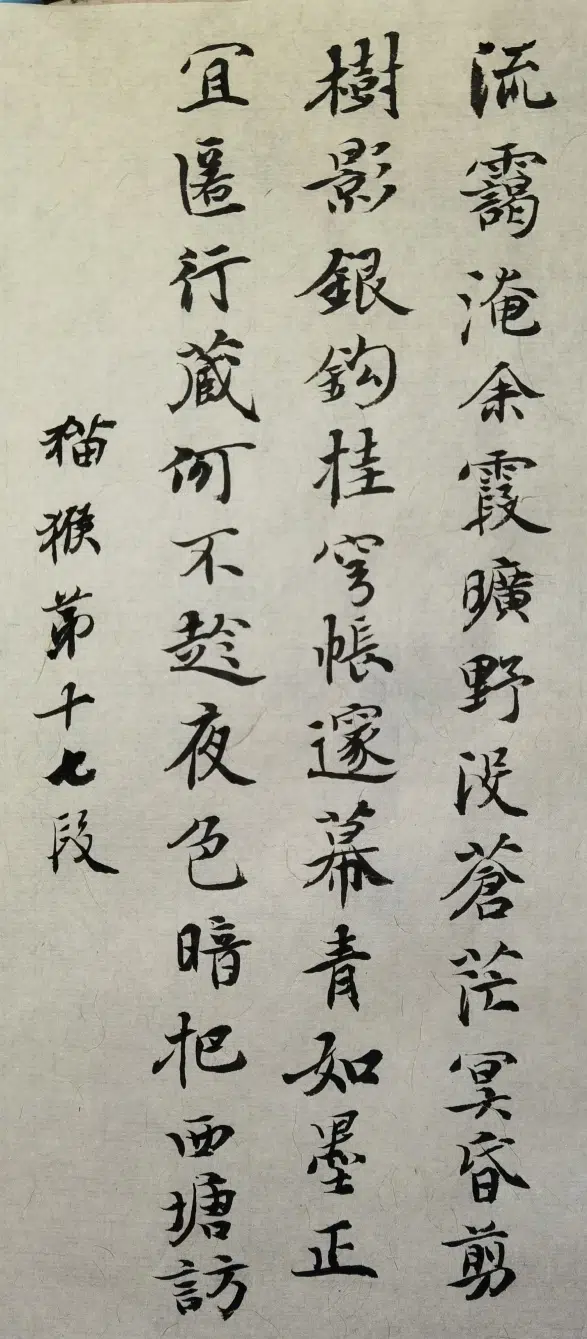 流靄淹余霞曠野没蒼茫冥昏剪
樹影銀鈎桂穹帳邃幕青如墨正
宜匿行蔵何不趁夜色暗把西塘訪
猫猴第十七段